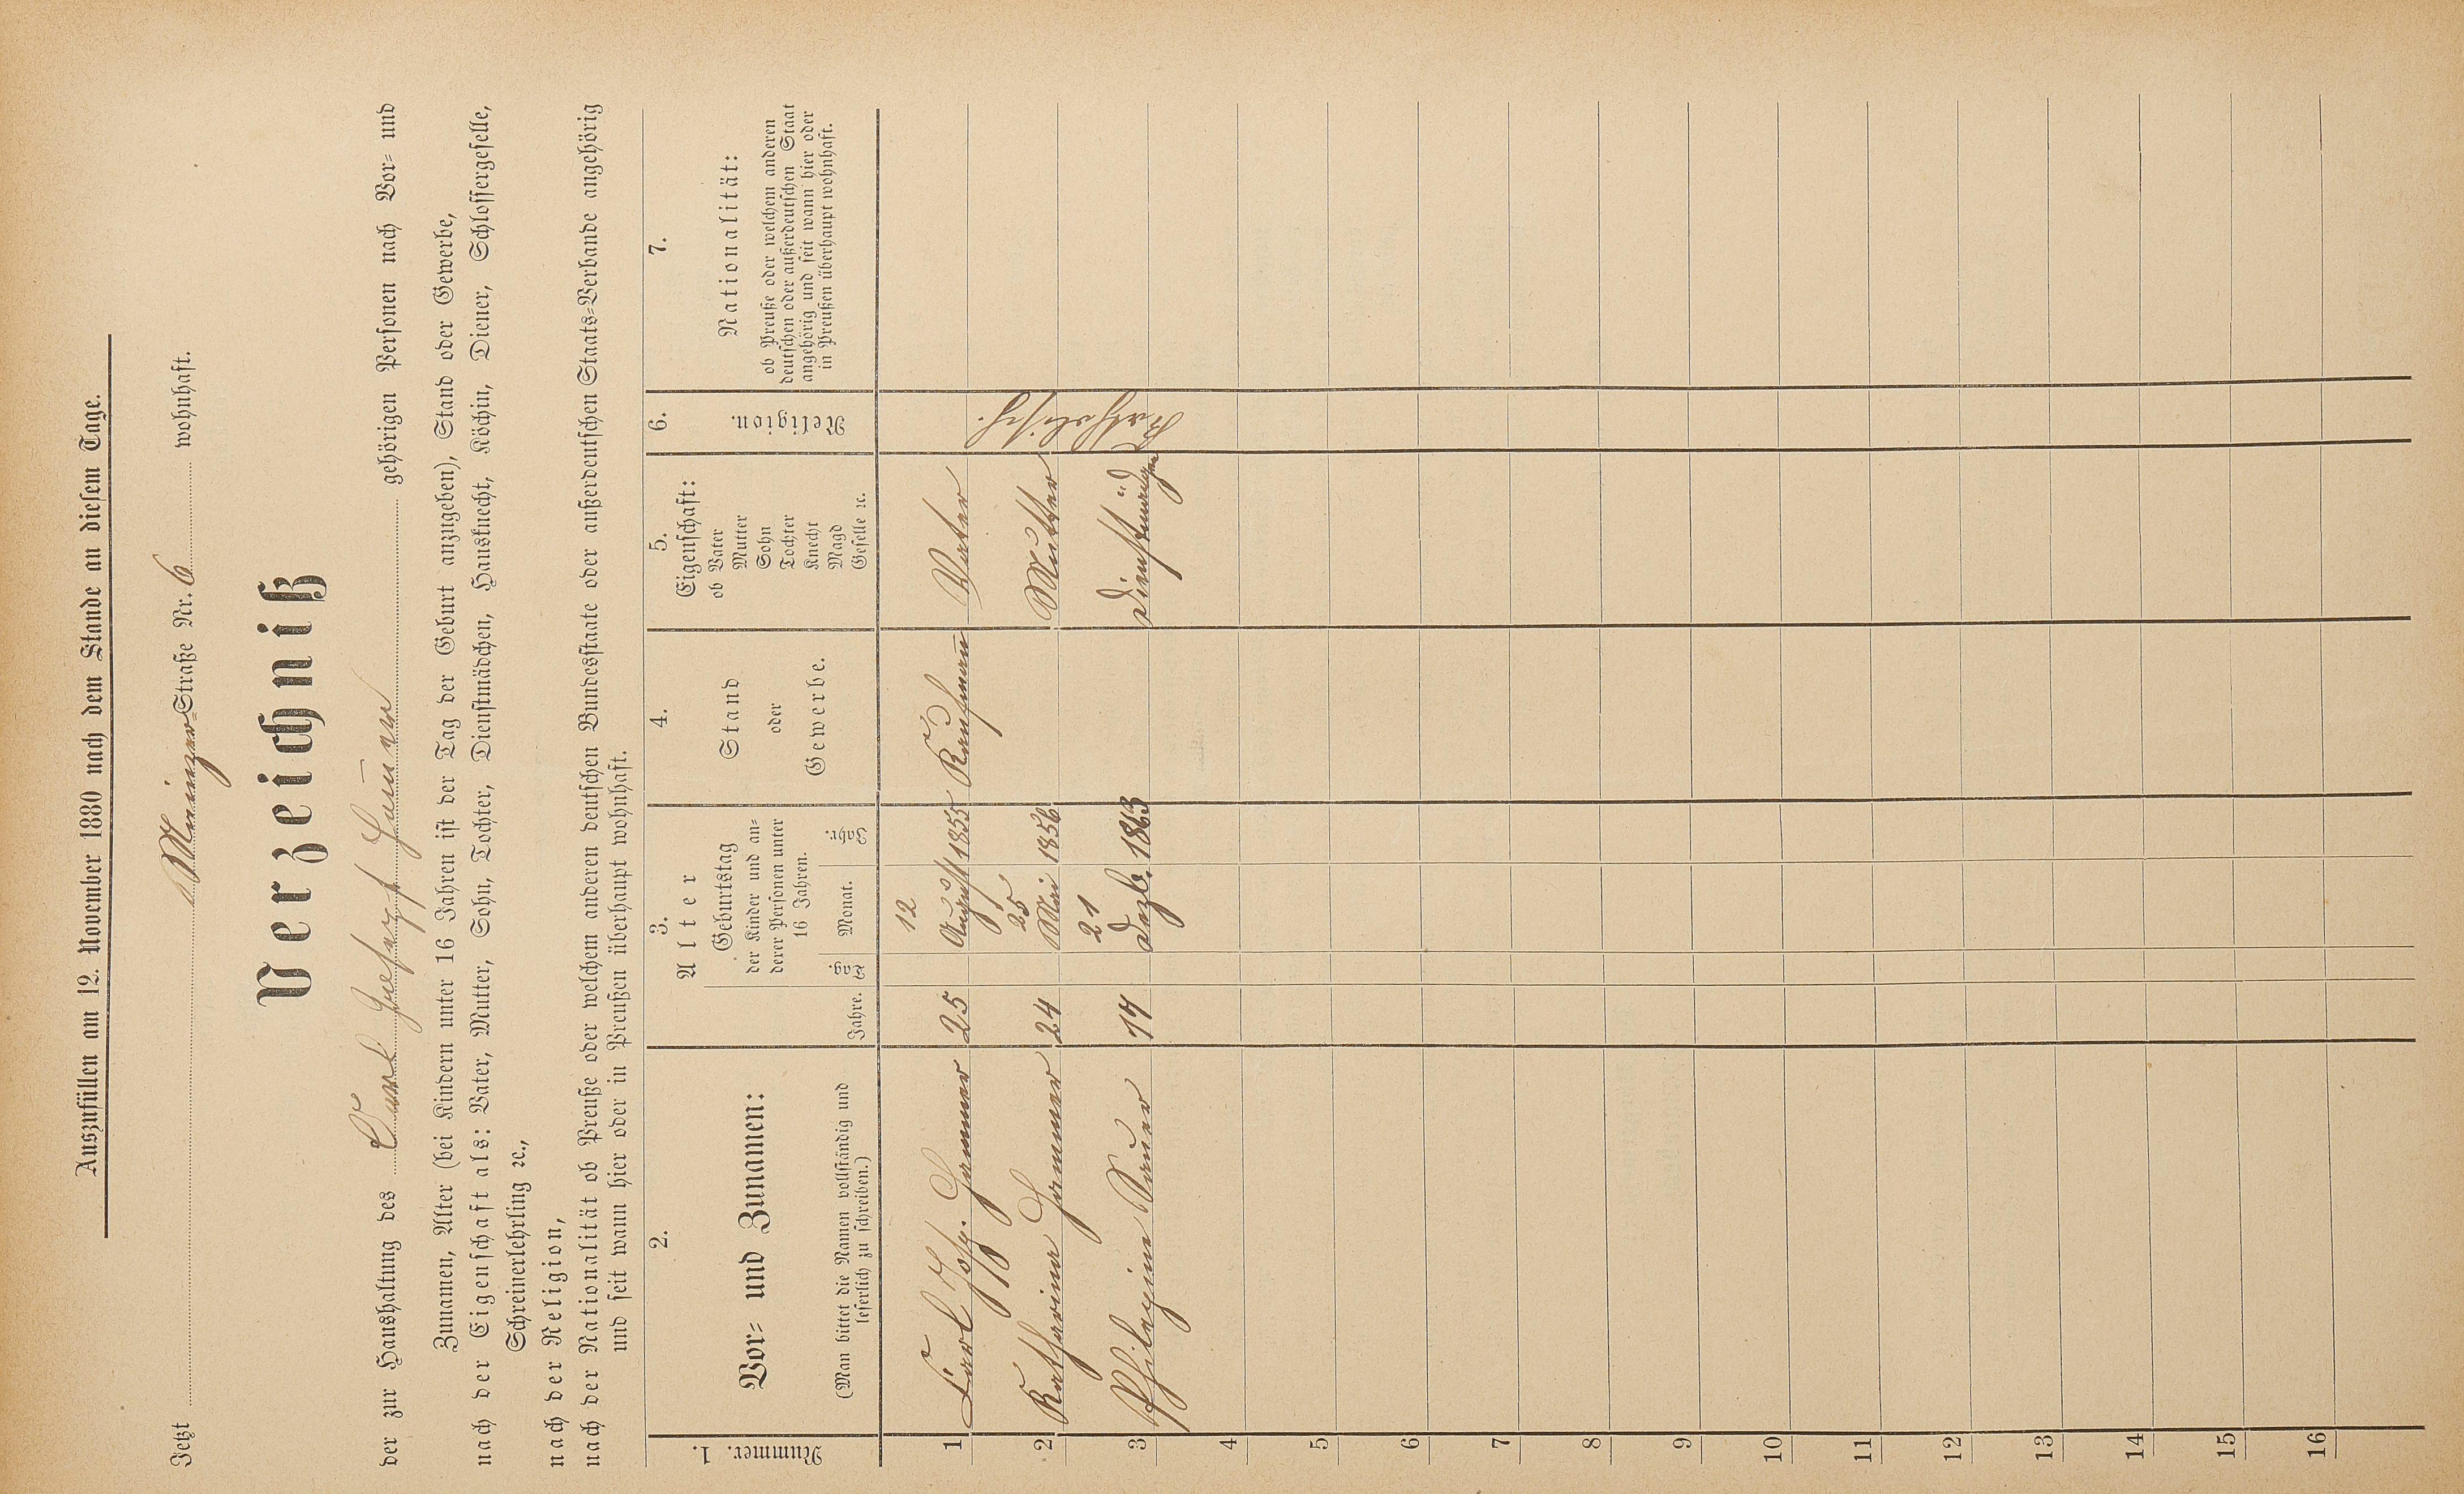 Auszufüllen am 12. November 1880 nach dem Stande an diesem Tage.
Jetzt Mainzer-Straße Nr. 6 wohnhaft.
Verzeichniß
der zur Haushaltung des Carl Josepf Ham̅er gehörigen Personen nach Vor- und
Zunamen, Alter (bei Kindern unter 16 Jahren ist der Tag der Geburt anzugeben), Stand oder Gewerbe,
nach der Eigenschaft als: Vater, Mutter, Sohn, Tochter, Dienstmädchen, Hausknecht, Köchin, Diener, Schlossergeselle,
Schreinerlehrling ꝛc.,
nach der Religion,
nach der Nationalität ob Preuße oder welchem anderen deutschen Bundesstaate oder außerdeutschen Staats-Verbande angehörig
und seit wann hier oder in Preußen überhaupt wohnhaft.
1.
Nummer.
2.
Vor- und Zunamen:
(Man bittet die Namen vollständig und
leserlich zu schreiben.)
3.
Alter
Jahre.
Geburtstag
der Kinder und an-
derer Personen unter
16 Jahren.
Tag. Monat. Jahr.
4.
Stand
oder
Gewerbe.
5.
Eigenschaft:
ob Vater
Mutter
Sohn
Tochter
Knecht
Magd
Geselle ꝛc.
6.
Religion.
7.
Nationalität:
ob Preuße oder welchem anderen
deutschen oder außerdeutschen Staat
angehörig und seit wann hier oder
in Preußen überhaupt wohnhaft.
1 Carl Josf. Hammer 25 12 August 1855 Kaufman̅ Vater
2 Katharina Hammer 24 25 Mai 1856 Mutter
3 Sauer 17 21 Dezb. 1863
Katholisch.
4
5
6
7
8
9
10
11
12
13
14
15
16